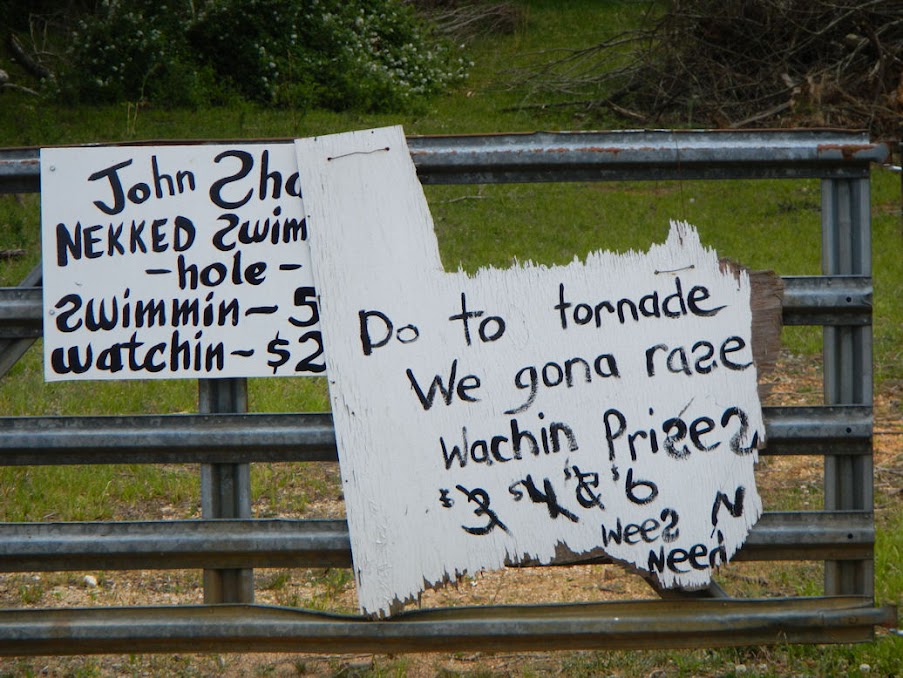 John
NEKKED Swim
-hole-
Swimmin- 5
watchin- $2
Do to tornade
We gona rase
Wachin Prises
$3 $4 $5 $6
Wees N
Need